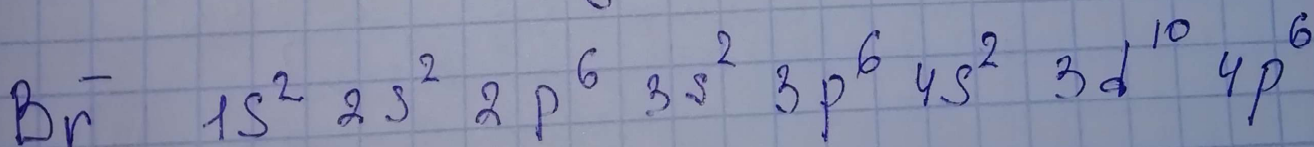 Br⁻ 1s² 2s² 2p⁶ 3s² 3p⁶ 4s² 3d¹⁰ 4p⁶